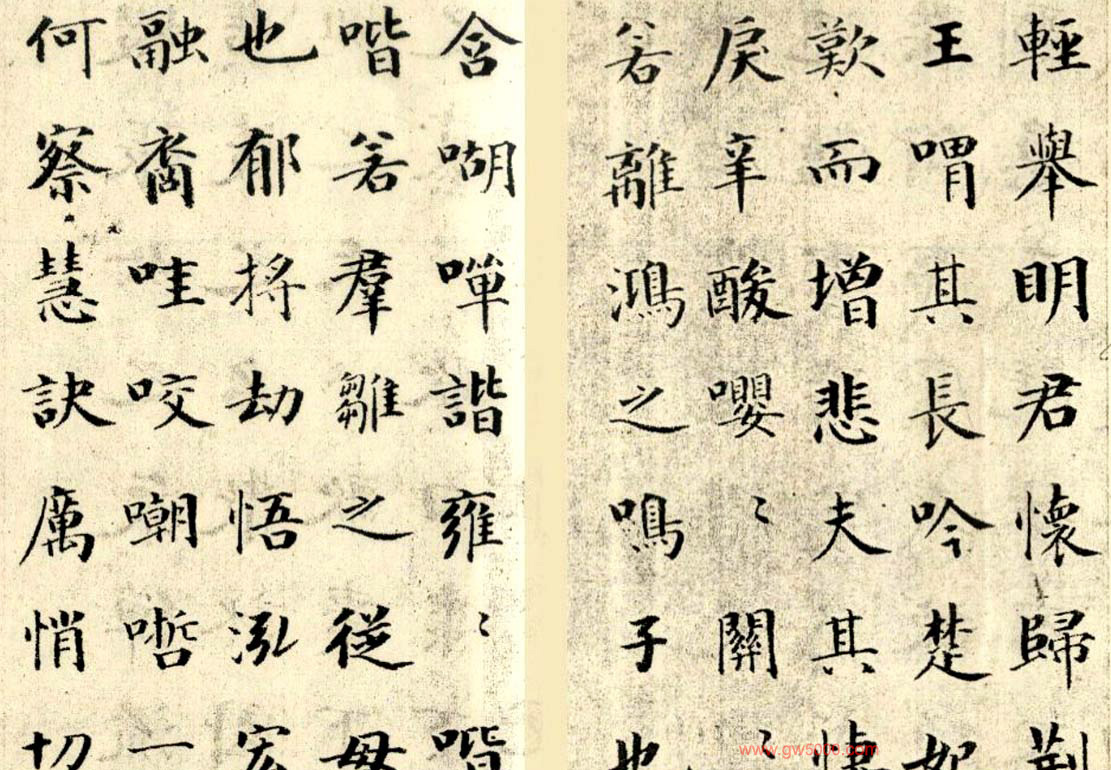 輕舉明君懷歸荊
王喟其長吟楚妃
歎而增悲夫其悽
戾辛酸嚶〻關〻
若離鴻之鳴子也
含㗅嘽諧雍〻喈
喈若羣雛之從母
也郁捋劫悟泓宏
融裔哇咬嘲哳一
何察慧訣厲悄切
www.gw5000.com